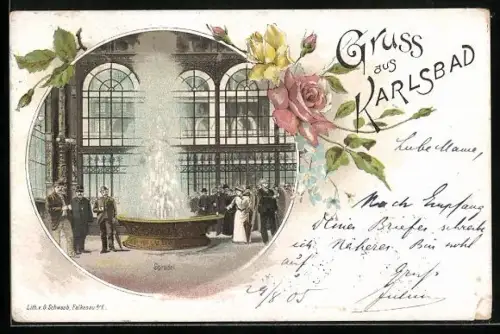 Gruss
aus
Karlsbad
Liebe Mame,
Nach Empfang
Deines Briefes schreibe
ich Näheres. Bin wohl
auf
Gruß
29/8 05
Sprudel
Lith. v. G. Schwab, Falkenau a/E.